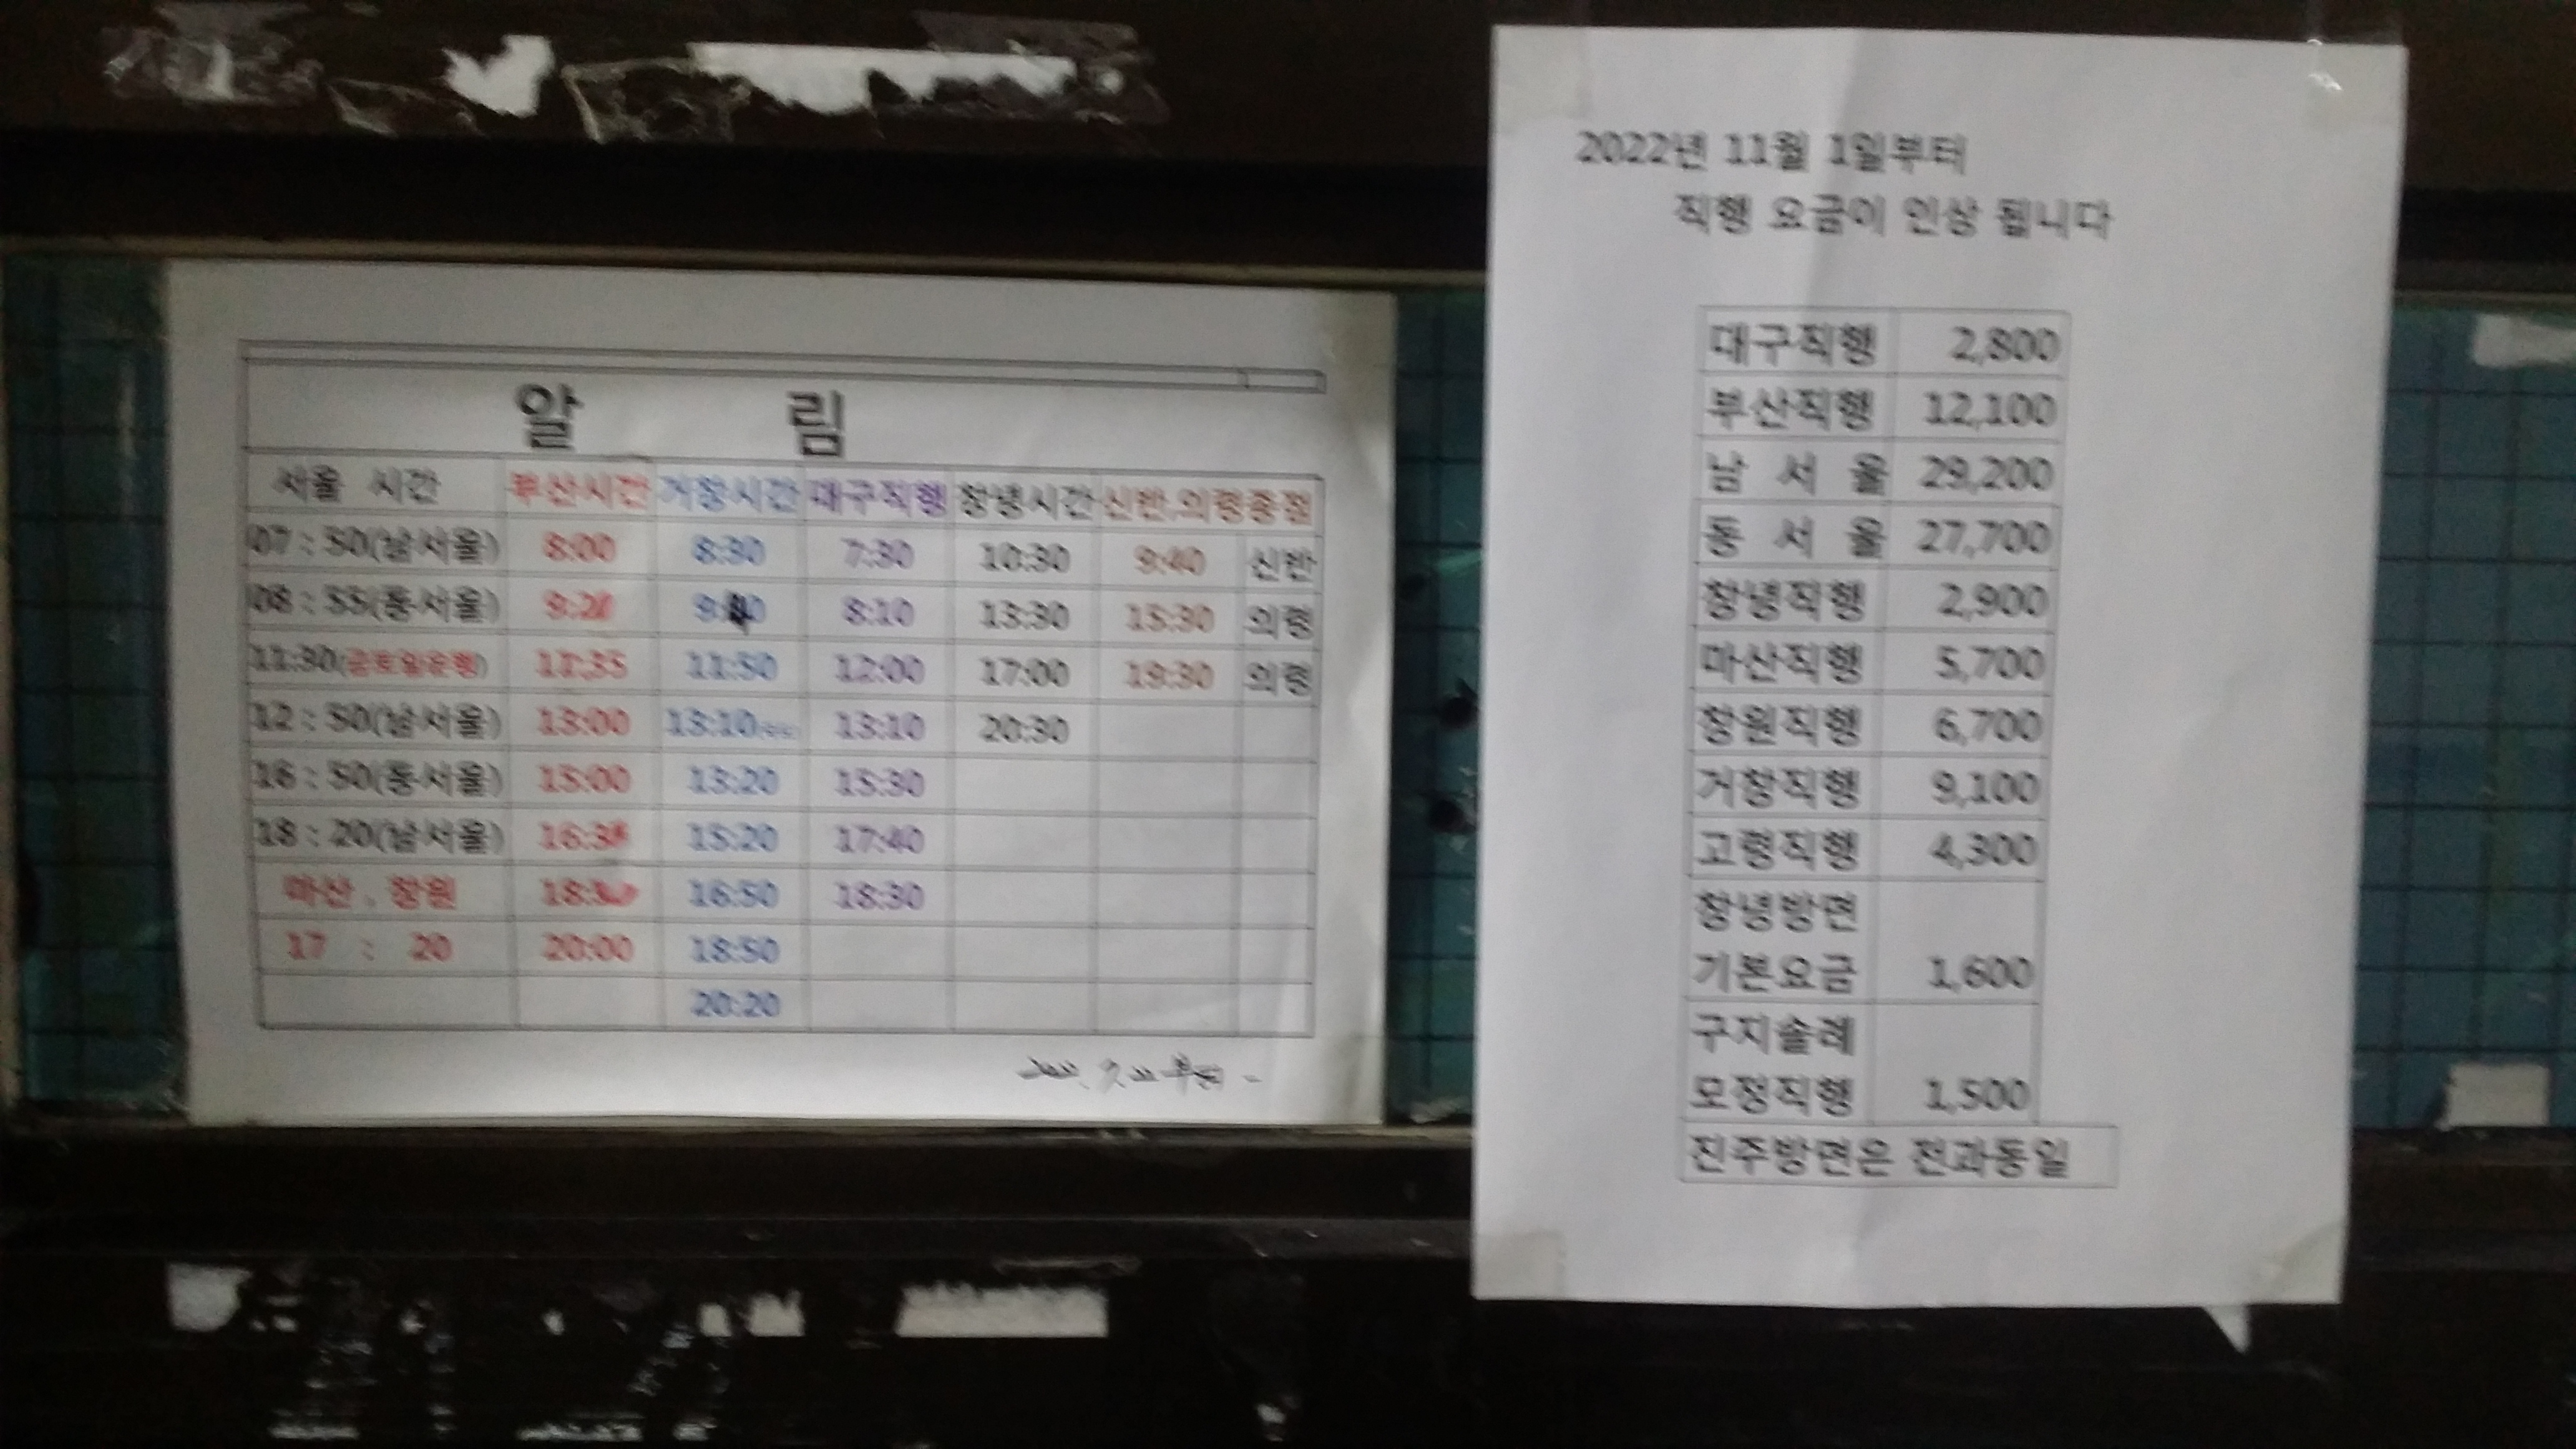 알 림
서울 시간 부산시간 거창시간 대구직행 창녕시간 신반.의령종점
07 : 50(남서울) 8:00 8:30 7:30 10:30 9:40 신반
08 : 55(동서울) 8:10 13:30 15:30 의령
11:30(금토일운행) 11:35 11:50 12:00 17:00 19:30 의령
12 : 50(남서울) 13:00 13:10 13:10 20:30
16 : 50(동서울) 15:00 13:20 15:30
18 : 20(남서울) 15:20 17:40
마산 . 창원 16:50 18:30
17 : 20 20:00 18:50
20:20
2022년 11월 1일부터
직행 요금이 인상 됩니다
대구직행 2,800
부산직행 12,100
남 서 울 29,200
동 서 울 27,700
창녕직행 2,900
마산직행 5,700
창원직행 6,700
거창직행 9,100
고령직행 4,300
창녕방면
기본요금 1,600
구지솔례
모정직행 1,500
진주방면은 전과동일